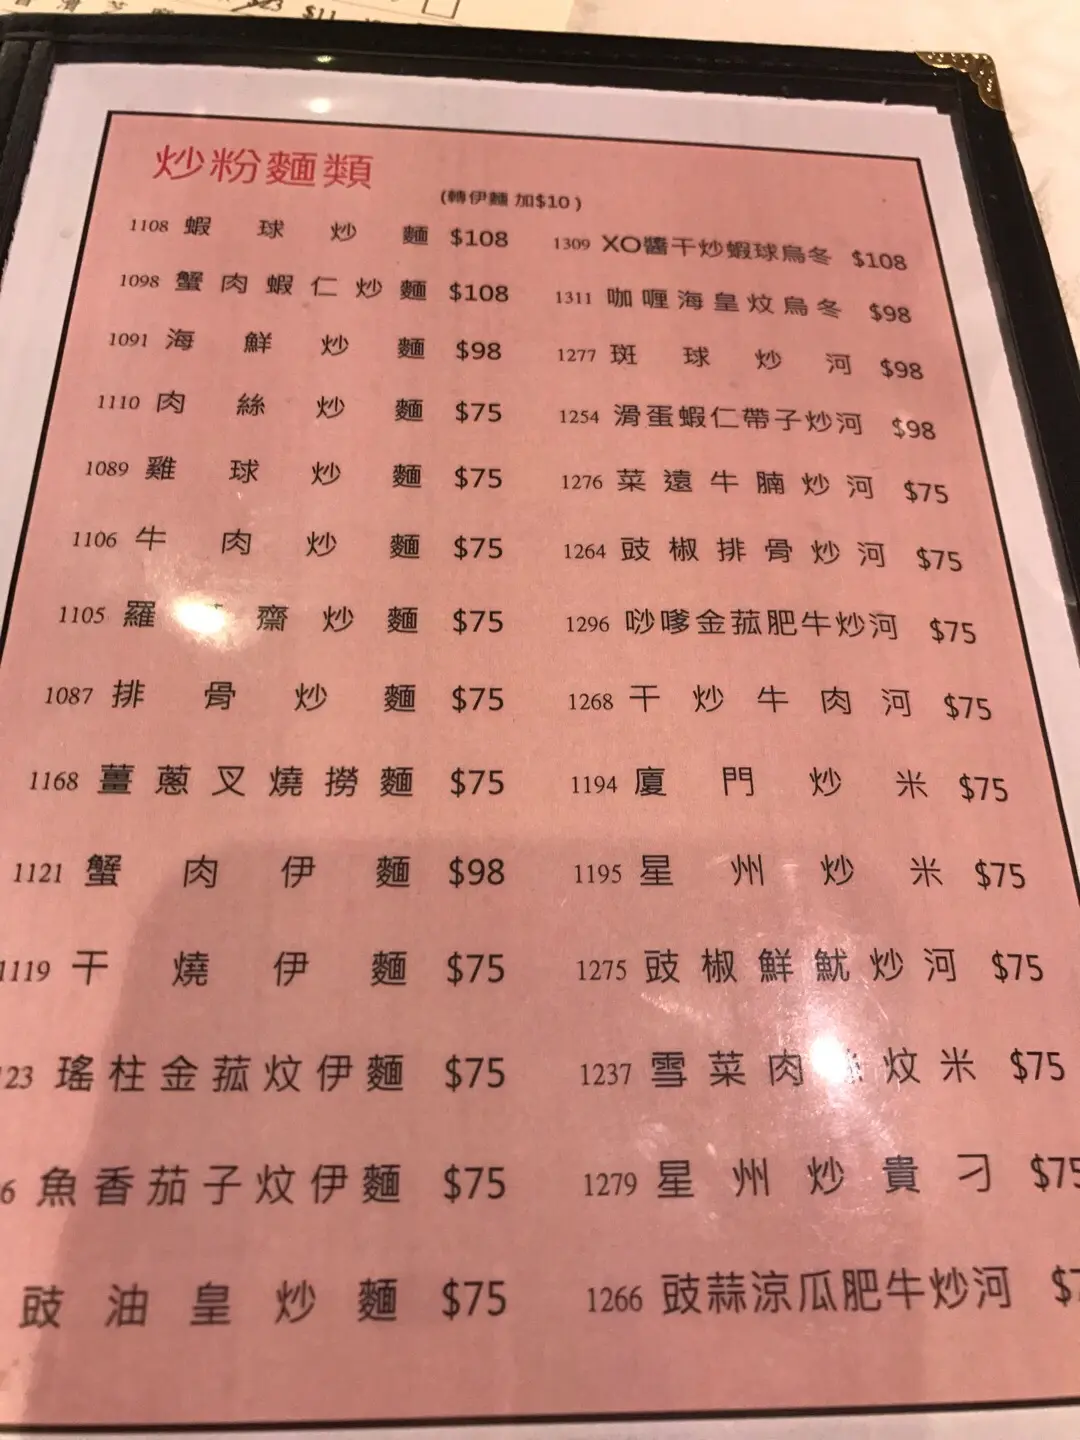 炒粉麵類
(轉伊麵 加$10)
1108 蝦球炒麵 $108
1098 蟹肉蝦仁炒麵 $108
1091 海鮮炒麵 $98
1110 肉絲炒麵 $75
1089 雞球炒麵 $75
1106 牛肉炒麵 $75
1105 羅 齋炒麵 $75
1087 排骨炒麵 $75
1168 薑蔥叉燒撈麵 $75
1121 蟹肉伊麵 $98
1119 干燒伊麵 $75
123 瑤柱金菰炆伊麵 $75
6 魚香茄子炆伊麵 $75
豉油皇炒麵 $75
1309 XO醬干炒蝦球烏冬 $108
1311 咖喱海皇炆烏冬 $98
1277 斑球炒河 $98
1254 滑蛋蝦仁帶子炒河 $98
1276 菜遠牛腩炒河 $75
1264 豉椒排骨炒河 $75
1296 吵嗲金菰肥牛炒河 $75
1268 干炒牛肉河 $75
1194 廈門炒米 $75
1195 星州炒米 $75
1275 豉椒鮮魷炒河 $75
1237 雪菜肉 炆米 $75
1279 星州炒貴刁 $75
1266 豉蒜涼瓜肥牛炒河